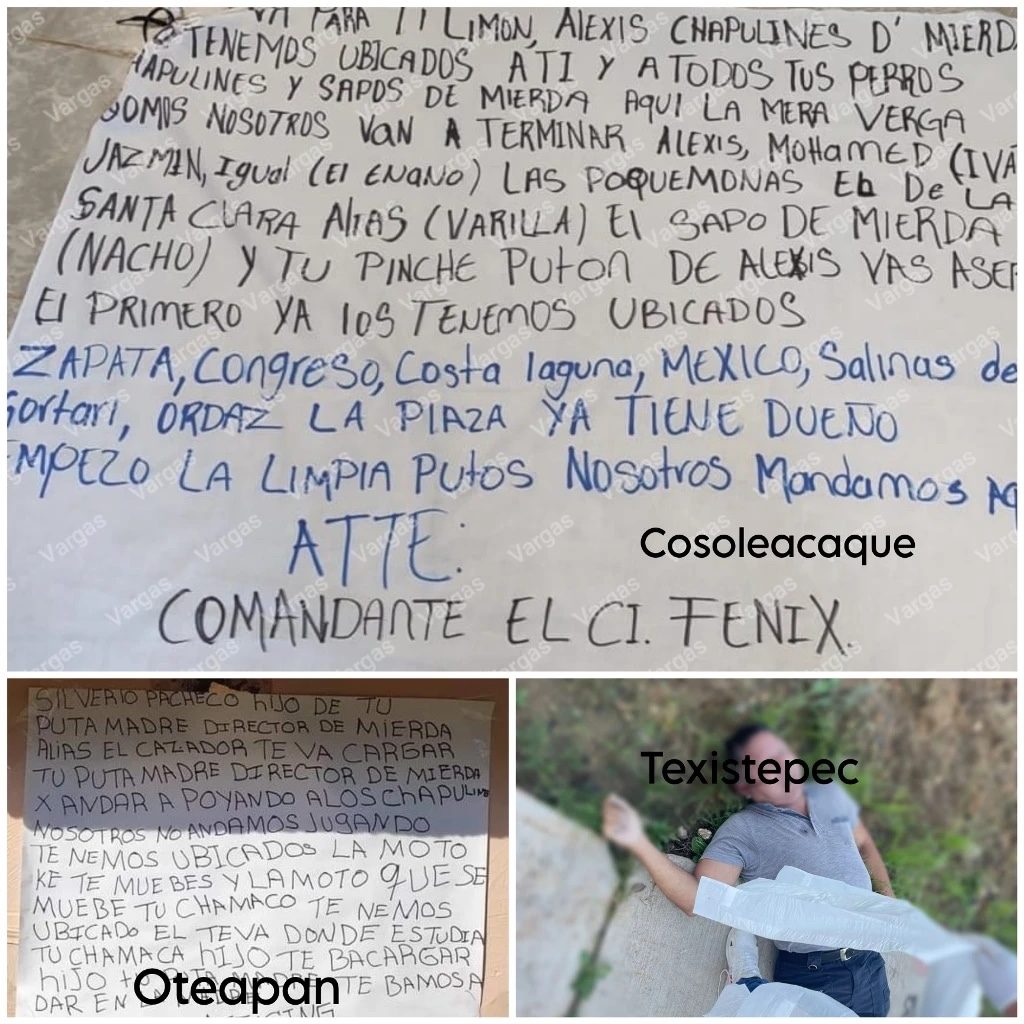 VA PARA TI LIMON, ALEXIS CHAPULINES D' MIERD
TENEMOS UBICADOS ATI Y A TODOS TUS PERROS
HAPULINES Y SAPOS DE MIERDA AQUI LA MERA VERGA
SOMOS NOSOTROS VAN A TERMINAR ALEXIS, MOHAMED (IVA
JAZMIN, Igual (El ENANO) LAS POQUEMONAS EL De LA
SANTA CLARA AlIAS (VARILLA) El SAPO DE MIERDA
(NACHO) Y TU PINCHE PUtOn DE ALEXIS VAS ASER
El PRIMERO YA lOS TENEMOS UBICADOS
ZAPATA, Congreso, Costa laguna, MEXICO, Salinas de
Gortari, ORDAZ LA PlAZA YA TIENE DUEÑO
EMPEZO LA LIMPIA PUtOS Nosotros Mandamos AQ
ATTE:
COMANDANTE EL CI. FENIX.
Cosoleacaque
SILVERIO PACHECO hIJO DE TU
PUTA MADRE DIRECTOR DE MIERDA
AlIAS EL CAZADOR TE VA CARGAR
TU PUTA MADRE DIRECTOR DE MIERDA
X ANDAR A POYANDO A LOS ChAPULINES
NOSOTROS NO ANDAMOS JUGANDO
TE NEMOS UBICADOS LA MOTO
KE TE MUEBES Y LA MOTO qUE SE
MUEBE TU CHAMACO TE NEMOS
UBICADO EL TEVA DONDE ESTUDIA
TU CHAMACA hIJO TE BACARGAR
hIJO MADRE TE BAMOS A
DAR EN
Oteapan
Texistepec
Vargas